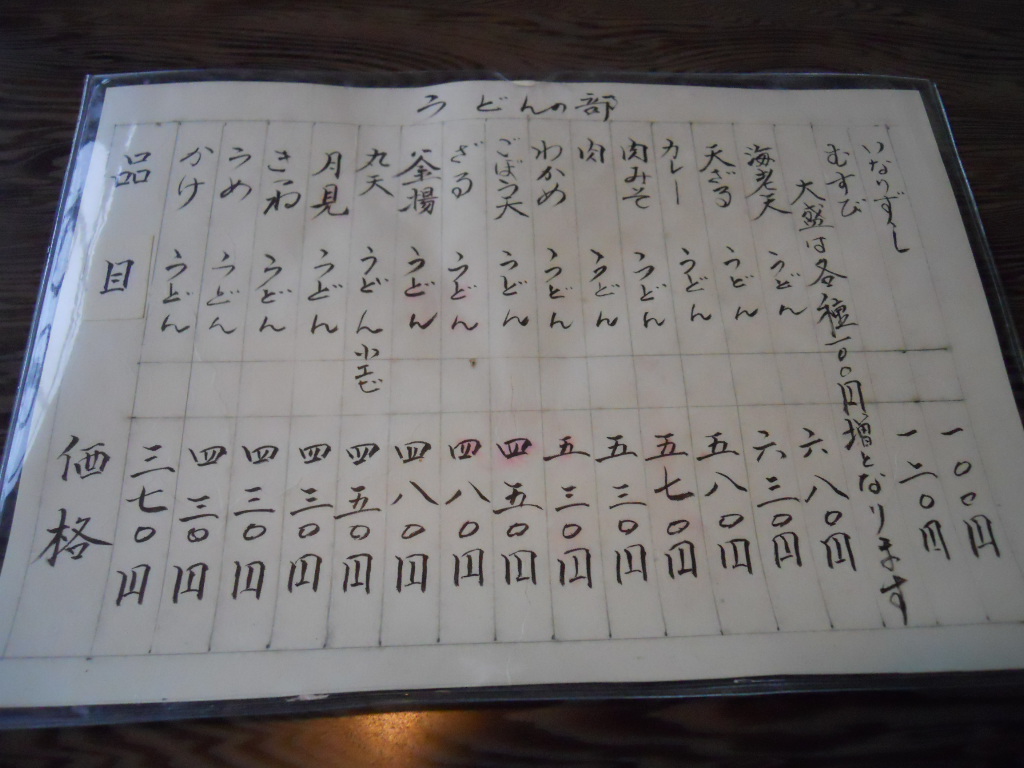 うどんの部
品目 価格
かけうどん 三七〇円
うめうどん 四三〇円
きつねうどん 四三〇円
月見うどん 四三〇円
丸天うどん 小エビ 四五〇円
釜揚うどん 四八〇円
ざるうどん 四八〇円
ごぼう天うどん 四五〇円
わかめうどん 五三〇円
肉うどん 五三〇円
肉みそうどん 五七〇円
カレーうどん 五八〇円
天ざるうどん 六三〇円
海老天うどん 六八〇円
大盛は各種一〇〇円増となります
むすび 一二〇円
いなりずし 一〇〇円